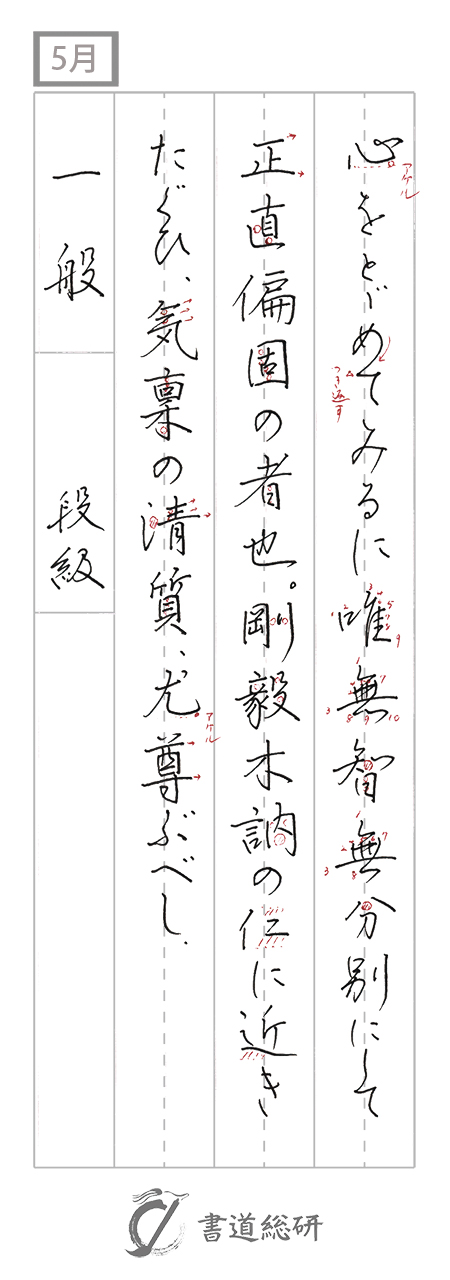 5月
心をとゞめてみるに唯無智無分別にして
正直偏固の者也。剛毅木訥の仁に近き
たぐひ、気稟の清質、尤尊ぶべし.
一般
段級
アケル
つき返す
アケル
書道総研